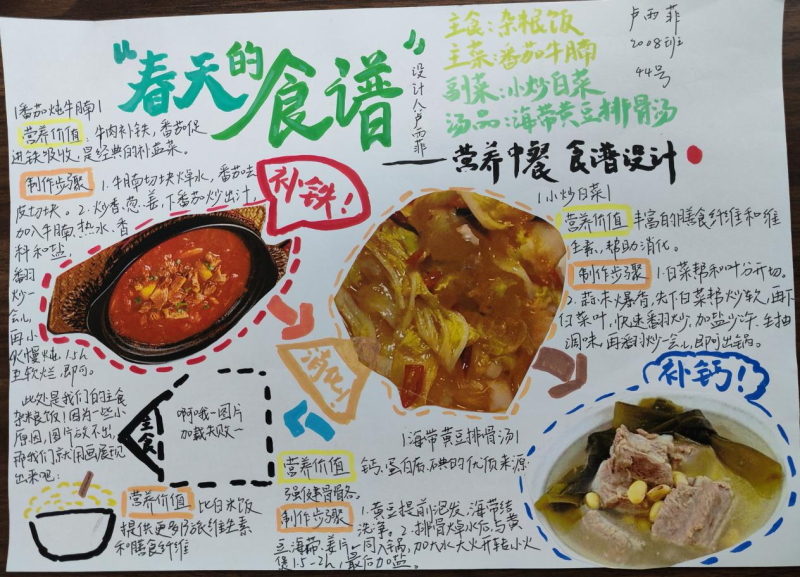 “春天的食谱”
设计人:卢雨菲
主食:杂粮饭
主菜:番茄牛腩
副菜:小炒白菜
汤品:海带黄豆排骨汤
——营养中餐 食谱设计
卢雨菲
2008班
44号
|番茄炖牛腩|
营养价值:牛肉补铁,番茄促
进铁吸收,是经典的补血菜。
制作步骤 1.牛腩切块焯水,番茄去
皮切块。2.炒香葱、姜,下番茄炒出汁,
加入牛腩、热水、香
料和盐,
翻
炒一
会儿
再小
火慢炖1.5h
至软烂,即可。
补铁!
|小炒白菜|
营养价值 丰富的膳食纤维和维
生素,帮助消化。
制作步骤 1.白菜帮和叶分开切。
2.蒜末爆香,先下白菜帮炒软,再下
白菜叶,快速翻炒,加盐少许、生抽
调味,再翻炒一会儿,即可出锅。
消化!
此处是我们的主食
杂粮饭!因为一些小
原因,图片放不出,
那我们就用画展现
出来吧:
主食
啊哦~图片
加载失败~
营养价值 比白米饭
提供更多B族维生素
和膳食纤维
|海带黄豆排骨汤|
营养价值 钙、蛋白质、碘的优质来源
强健骨骼。
制作步骤 1.黄豆提前泡发,海带结
洗净。2.排骨焯水后,与黄
豆、海带、姜片一同入锅,加大水大火开转小火
煲1.5-2h,最后加盐。
补钙!